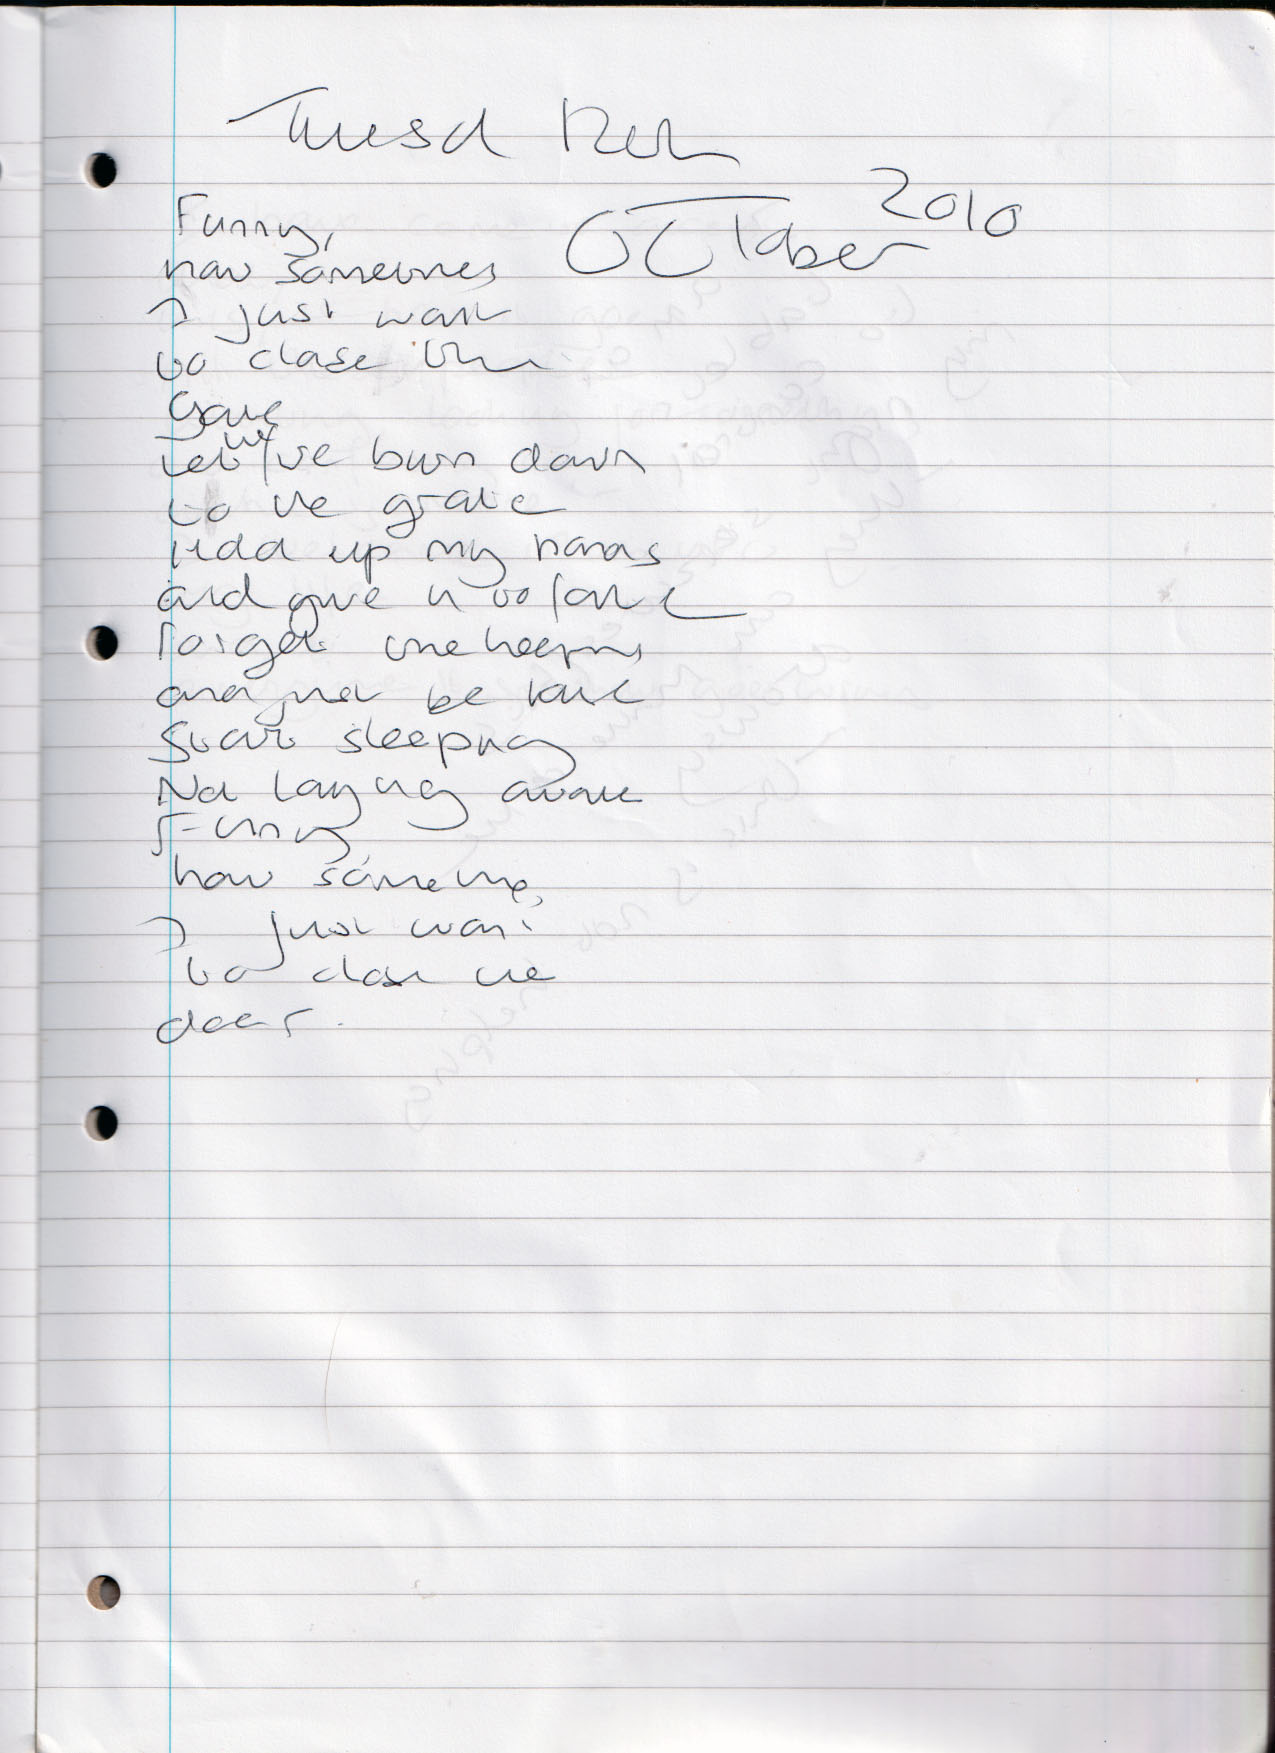 Tuesd 12th
October 2010
Funny,
how sometimes
I just want
to close the
gate
Let the fire burn down
to the grate
Hold up my hands
and give it to fate
Forget the keeping
and just be
Start sleeping
Not laying awake
Funny
how sometimes,
I just want
to close the
door.